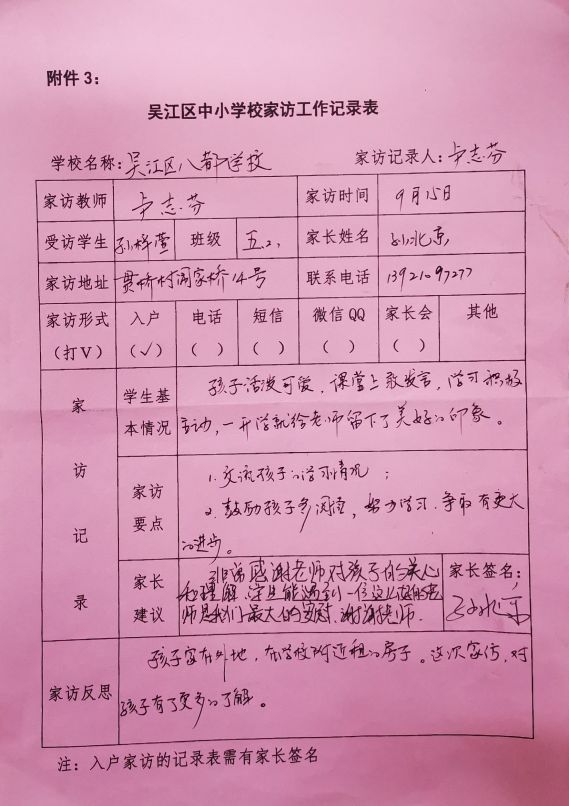 附件 3：
吴江区中小学校家访工作记录表
学校名称：吴江区八都学校 家访记录人：卢志芬
家访教师 卢志芬 家访时间 9月15日
受访学生 孙梓萱 班级 五.2. 家长姓名 孙兆京
家访地址 贯桥村阎家桥14号 联系电话 13921097277
家访形式 入户 电话 短信 微信 QQ 家长会 其他
（打 V） （√） （ ） （ ） （ ） （ ）
家访记录
学生基本情况
孩子活泼可爱，课堂上敢发言，学习积极
主动，一开学就给老师留下了美好的印象。
家访要点
1.交流孩子的学习情况；
2.鼓励孩子多阅读，努力学习.争取有更大
的进步。
家长建议
非常感谢老师对孩子的关心
和理解， 能遇到一位这么好的老
师是我们最大的 .谢谢老师.
家长签名：
家访反思
孩子家在外地，在学校附近租的房子。这次家访，对
孩子有了更多的了解。
注：入户家访的记录表需有家长签名